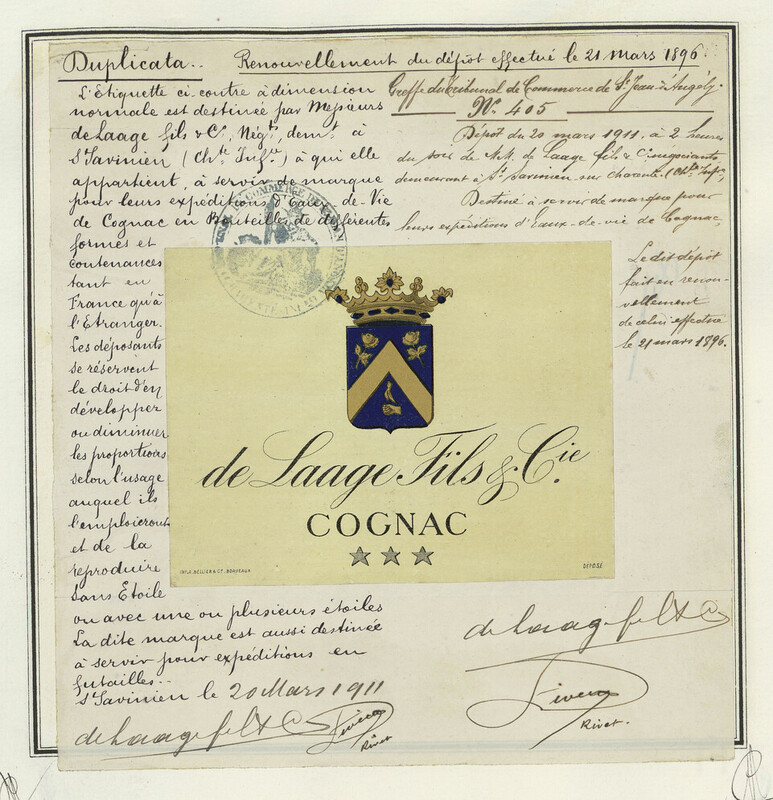 Duplicata.. Renouvellement du dépôt effectué le 21 mars 1896.
L'Etiquette ci-contre à dimension
normale est destinée par Messieurs
de Laage fils & Cº, Négts, demt à
St Savinien (Chte Infre) à qui elle
appartient, à servir de marque
pour leurs expéditions d'Eaux-de-Vie
de Cognac en Bouteilles de différentes
formes et
contenances
tant en
France qu'à
l'Etranger.
Les déposants
se réservent
le droit d'en
développer
ou diminuer
les proportions
selon l'usage
auquel ils
l'emploieront
et de la
reproduire
Sans Etoile
ou avec une ou plusieurs étoiles
La dite marque est aussi destinée
à servir pour expéditions en
futailles..
St Savinien le 20 Mars 1911
de Laage fils & Cº
Rivet
Greffe du Tribunal de Commerce de St Jean d'Angély.
Nº 405
Dépôt du 20 mars 1911, à 2 heures
du soir de M.M. de Laage fils & Cie négociants
demeurant à St Savinien-sur-Charente (Chte Infre)
Destiné à servir de marque pour
leurs expéditions d'Eaux-de-vie de Cognac,
Le dit dépôt
fait en renou-
vellement
de celui effectué
le 21 mars 1896.
de Laage Fils & Cie.
COGNAC
DÉPOSÉ
de Laage fils & Cº
Rivet.